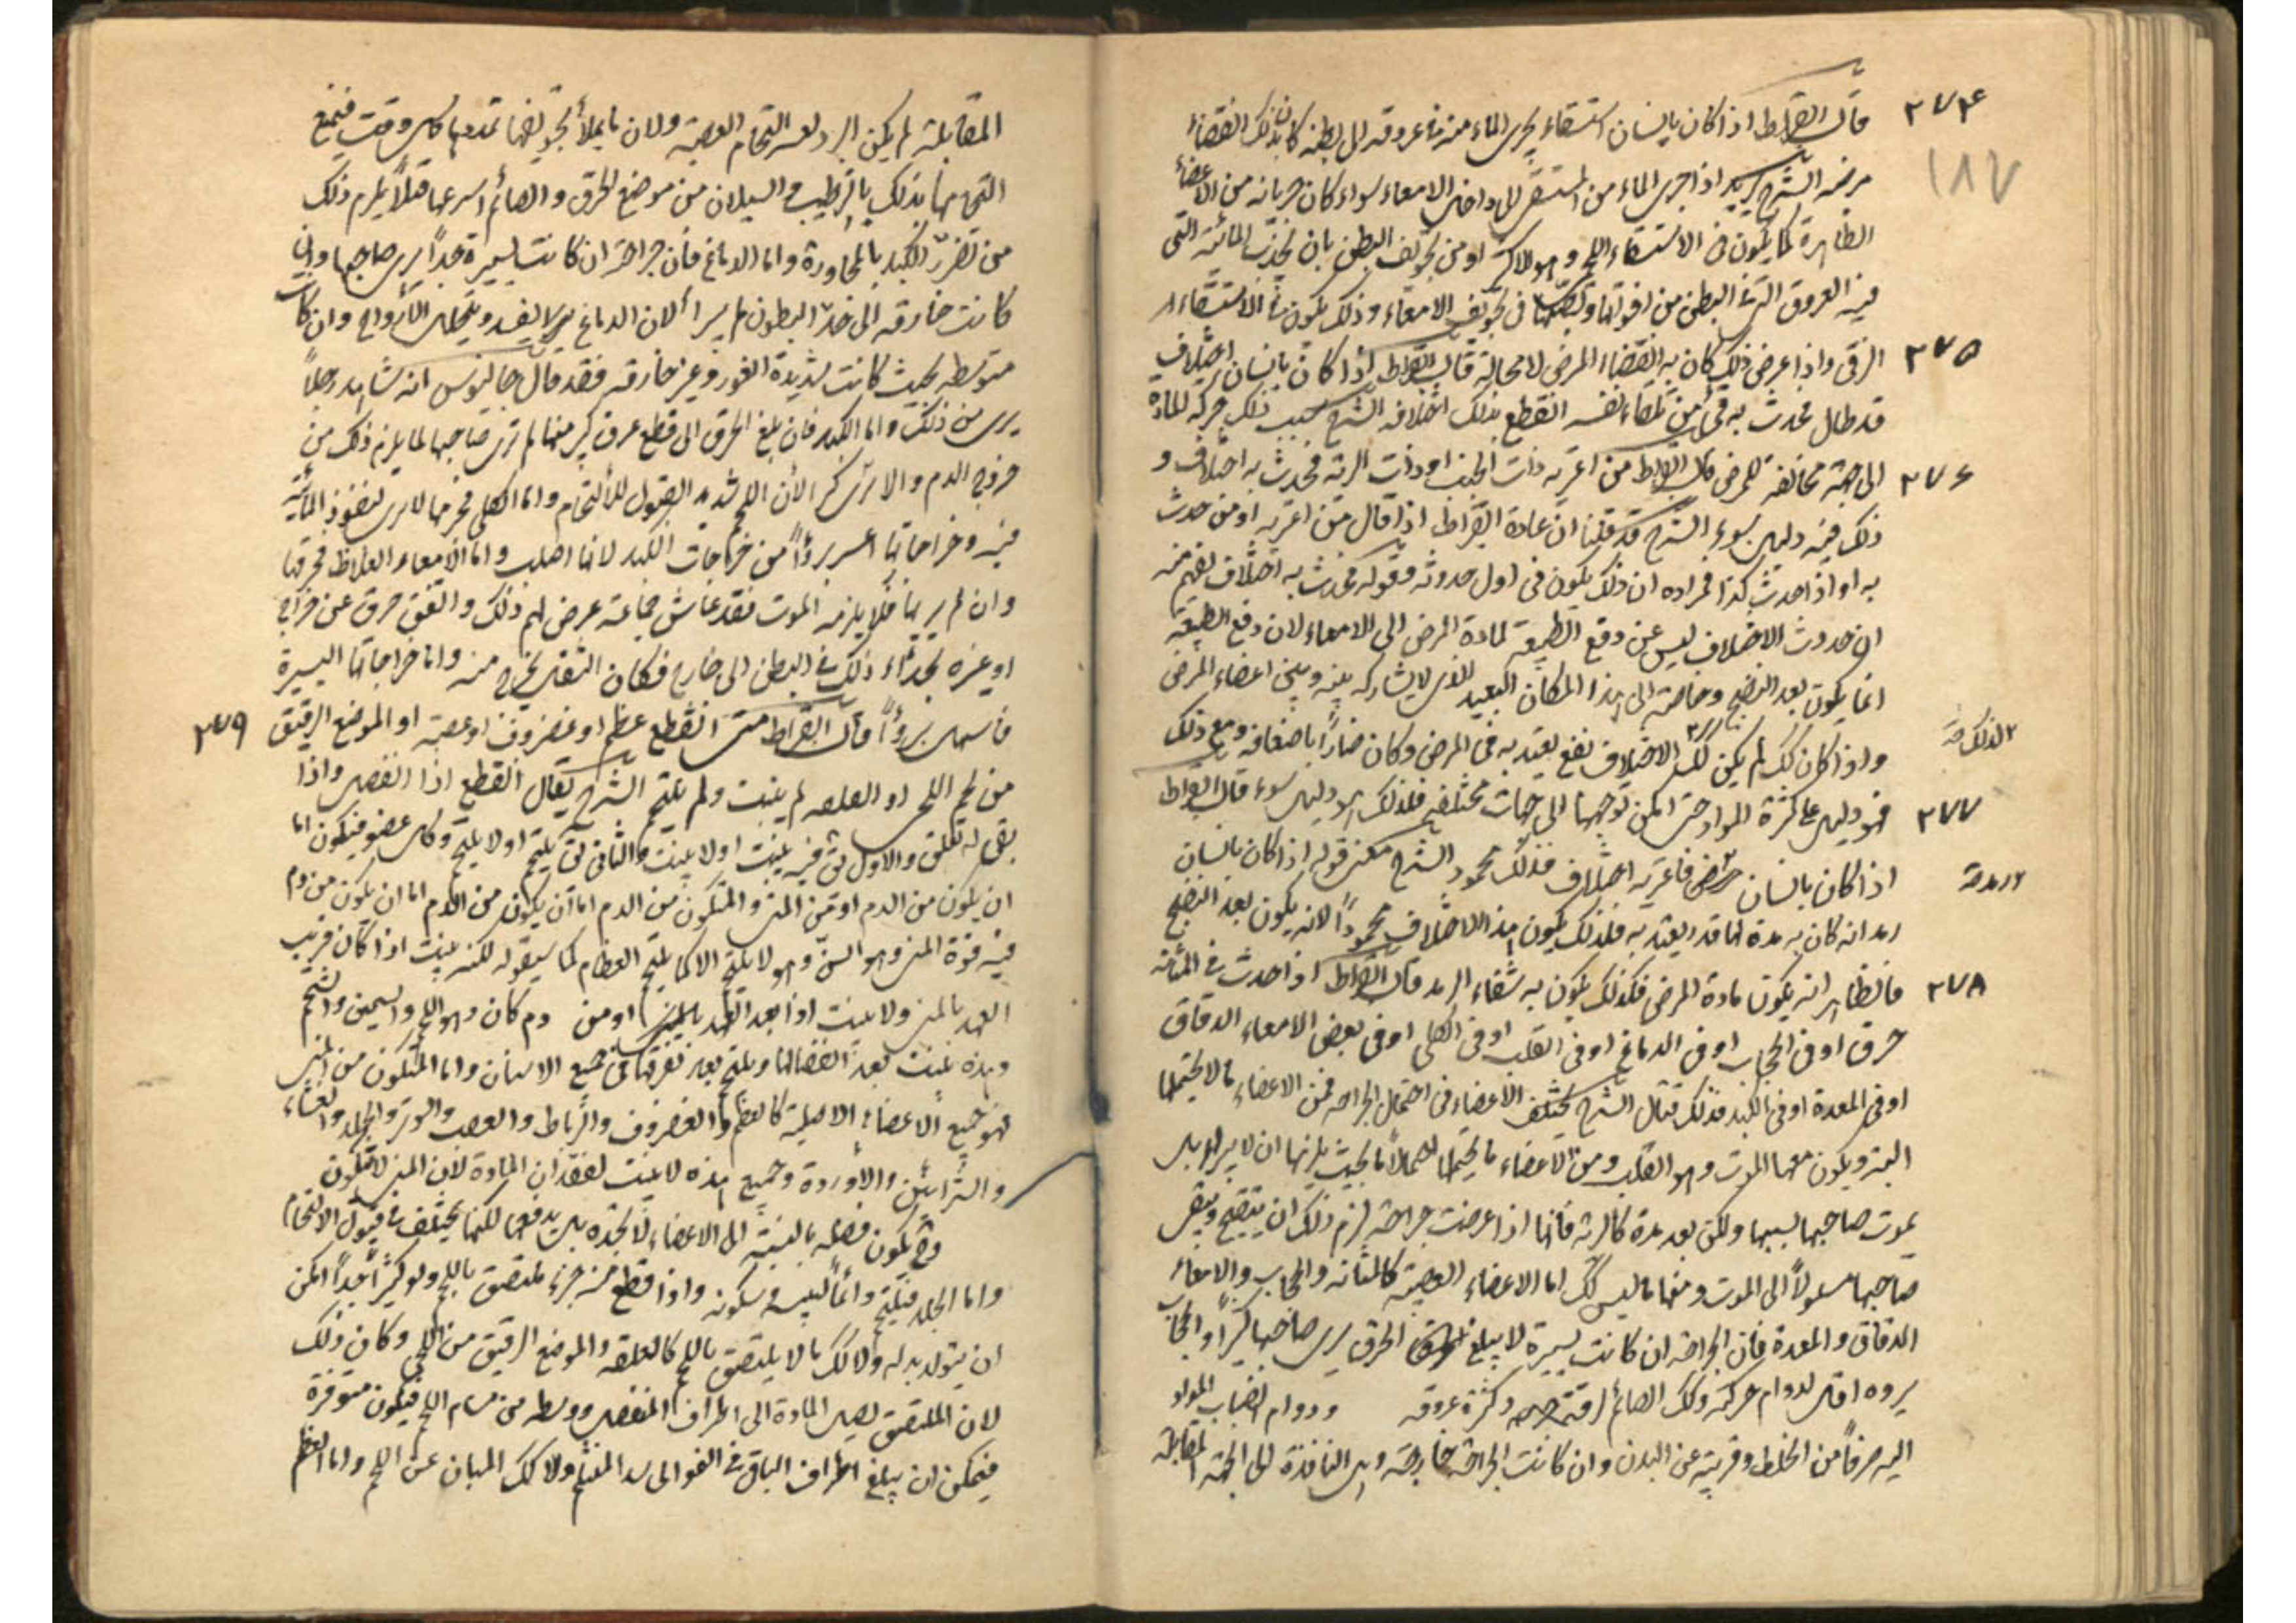 ٢٧٤
١٨٧
قال ابقراط اذا كان بانسان استسقاء يجرى الماء منه فى عروقه الى بطنه كان بذلك انقضاء
مرضه الشرح يريد اذا جرى الماء من المستسقى الى داخل الامعاء سواء كان جريانه من الاعضاء
الظاهرة كما يكون فى الاستسقاء اللحمى وهو الاكثر او من تجويف البطن بان تجذب المائية التى
فيه العروق التى فى البطن من افواهها وتصبها فى تجويف الامعاء وذلك يكون فى الاستسقاء
٢٧٥
الزقى واذا عرض ذلك كان به انقضاء المرض لا محالة قال ابقراط اذا كان بانسان اختلاف
قد طال فحدث به قىء من تلقاء نفسه انقطع بذلك اختلافه الشرح سبب ذلك حركة المادة
٢٧٦
الى جهة مخالفة للمرض قال ابقراط من اعتريه ذات الجنب او ذات الرئة فحدث به اختلاف و
ذلك فيه دليل سوء الشرح قد قلنا ان عادة ابقراط اذا قال من اعتريه او من حدث
به او اذا حدث كذا فمراده ان ذلك يكون فى اول حدوثه وقوله فحدث به اختلاف يفهم منه
ان حدوث الاختلاف ليس عن دفع الطبيعة لمادة المرض الى الامعاء لان دفع الطبيعة
انما يكون بعد النضج وخاصة الى هذا المكان البعيد الذى لا يشارك بينه وبين اعضاء المرض
واذا كان كك لم يكن لذلك الاختلاف نفع يعتد به فى المرض وكان ضارا باضعافه ومع ذلك
٢٧٧
فهو دليل على كثرة المواد حتى امكن توجهها الى جهات مختلفة فلذلك هو دليل سوء قال ابقراط
اذا كان بانسان رمد فاعتريه اختلاف فذلك محمود الشرح معنى قوله اذا كان بانسان
رمد انه كان به مدة لها قدر يعتد به فلذلك يكون هذا الاختلاف محمودا لانه يكون بعد النضج
٢٧٨
فالظاهر انه يكون مادة المرض فكذلك يكون به شفاء الرمد قال ابقراط اذا حدث فى المثانة
خرق او فى الحجاب او فى الدماغ او فى القلب او فى الكلى او فى بعض الامعاء الدقاق
او فى المعدة او فى الكبد فذلك قتال الشرح يختلف الاعضاء فى احتمال الجراحة فمن الاعضاء ما لا يحتملها
البتة ويكون معها الموت وهو القلب ومن الاعضاء ما يحتملها احتمالا ما بحيث يلزمها ان لا يبرا بل
يموت صاحبها بسببها ولكن بعد مدة كالرئة فانها اذا عرضت جراحة لزم ذلك ان يتقيح ويبقى
صاحبها مسلولا الى الموت ومنها ما ليس كك اما الاعضاء العصبية كالمثانة والحجاب والامعاء
الدقاق والمعدة فان الجراحة ان كانت يسيرة لا يبلغ الخرق برى صاحبها كثيرا والحجاب
بروه اقل لدوام حركته وكك الصائم لرقة جرمه وكثرة عروقه ودوام انصباب المواد
اليه صرفا من الخلط وقربه عن البدن وان كانت الجراحة خارقة وهى النافذة الى الجهة المقابلة
المقابلة لم يكن البرؤ لعسر التحام العصبة ولان ما يملأ تجويفها تمددها كل وقت فيمنع
التحامها بذلك بالترطيب والسيلان من موضع الخرق والصائم اسرعها قتلا يلزم ذلك
من تضرر الكبد بالمجاورة واما الدماغ فان جراحته ان كانت يسيرة جدا برى صاحبها وان
كانت خارقة الى احد البطون لم يبرأ لان الدماغ يفسد ويتحلل الارواح وان كانت
متوسطة بحيث كانت شديدة الغور وغير خارقة فقد قال جالينوس انه شاهد رجلا
برى من ذلك واما الكبد فان بلغ الخرق الى قطع عرق كبير منها لم يبر صاحبها لما يلزم ذلك من
خروج الدم والا برى كثيرا لان اللحم شديد القبول للالتحام واما الكلى فخرقها لا يبرى لنفوذ المائية
فيه وجراحاتها اعسر بروءا من جراحات الكبد لانها اصلب واما الامعاء الغلاظ فخرقها
وان لم يبر بها فلا يلزمه الموت فقد عاش جماعة عرض لهم ذلك واتفق خرق عن خراج
او غيره بحذاء ذلك فى البطن الى خارج فكان الثفل يخرج منه واما جراحاتها اليسيرة
٢٧٩
فاسهل بروءا قال ابقراط متى انقطع عظم او غضروف او عصبة او الموضع الرقيق
من لحم اللحى او القلفة لم ينبت ولم يلتحم الشرح يقال انقطع اذا انفصل واذا
بقى له تعلق والاول يق فيه ينبت او لا ينبت والثانى يق يلتحم او لا يلتحم وكل عضو فيكون اما
ان يكون من الدم او من المنى والمتكون من الدم اما ان يكون من الدم اما ان يكون من دم
فيه قوة المنى وهو السن وهو لا يلتحم الا كما يلتحم العظام كما سيقوله لكنه ينبت اذا كان قريب
العهد بالمنى ولا ينبت اذا بعد العهد بالمنى او من دم كان وهو اللحم والسمين والشحم
وهذه تنبت بعد انفصالها ويلتحم بعد تفرقها فى جميع الاسنان واما المتكون من المنى
فهو جميع الاعضاء الاصلية كالعظم والغضروف والرباط والعصب والوتر والجلد والغشاء
والشرايين والاوردة وجميع هذه لا ينبت لفقدان المادة لان المنى لا يتكون
وح يكون فضلة بالنسبة الى الاعضاء لا تجذبه بل يدفعها لكنها يختلف فى قبول الالتحام
واما الجلد فيلتحم واذا قطع منه جزء ملتصق باللحم ولو كبيرا جدا امكن
ان يتولد بدله ولا كك ما لا يلتصق باللحم كالقلفة والموضع الرقيق من اللحى وكان ذلك
لان الملتصق يصل المادة الى اطراف المنفصل ووسطه من مسام اللحم فيكون متوفرة
فيمكن ان يبلغ اطراف الباقى فى النمو الى سد المنثلم ولا كك المباين عن اللحم واما العظم